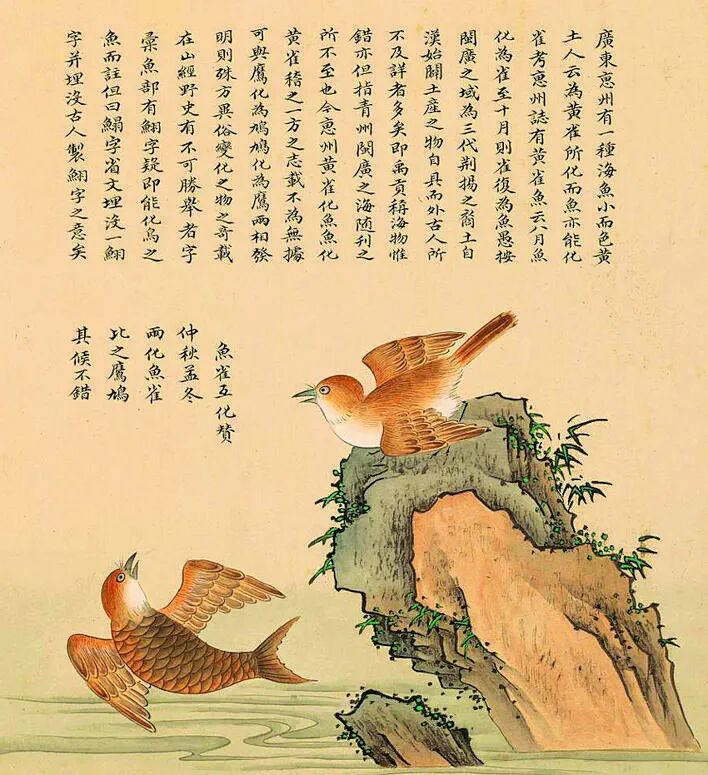 廣東惠州有一種海魚小而色黃
土人云為黃雀所化而魚亦能化
雀考惠州誌有黃雀魚云八月魚
化為雀至十月則雀復為魚愚按
閩廣之域為三代荊揚之裔土自
漢始闢土產之物自具而外古人所
不及詳者多矣即禹貢稱海物惟
錯亦但指青州閩廣之海隨刊之
所不至也今惠州黃雀化魚魚化
黃雀稽之一方之志載不為無據
可與鷹化為鳩鳩化為鷹兩相發
明則殊方異俗變化之物之奇載
在山經野史有不可勝舉者字
彙魚部有字疑即能化鳥之
魚而註但曰鰨字省文埋沒一
字并埋沒古人製字之意矣
魚雀互化贊
仲秋孟冬
兩化魚雀
比之鷹鳩
其候不錯